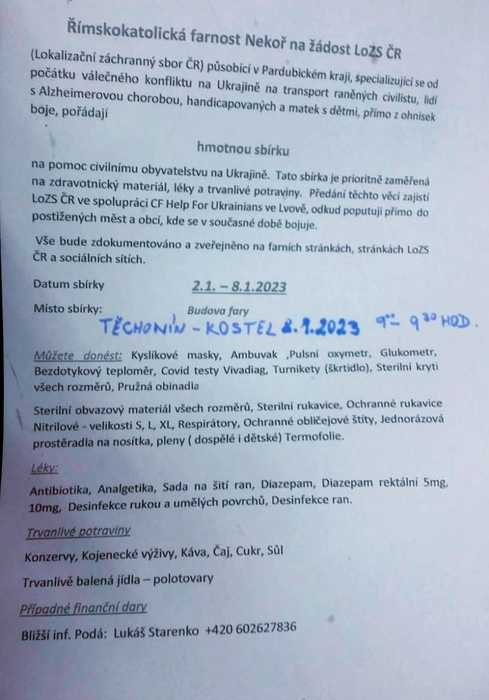 Římskokatolická farnost Nekoř na žádost LoZS ČR
(Lokalizační záchranný sbor ČR) působící v Pardubickém kraji, specializující se od
počátku válečného konfliktu na Ukrajině na transport raněných civilistu, lidí
s Alzheimerovou chorobou, handicapovaných a matek s dětmi, přímo z ohnisek
boje, pořádají
hmotnou sbírku
na pomoc civilnímu obyvatelstvu na Ukrajině. Tato sbírka je prioritně zaměřená
na zdravotnický materiál, léky a trvanlivé potraviny. Předání těchto věcí zajistí
LoZS ČR ve spolupráci CF Help For Ukrainians ve Lvově, odkud poputují přímo do
postižených měst a obcí, kde se v současné době bojuje.
Vše bude zdokumentováno a zveřejněno na farních stránkách, stránkách LoZS
ČR a sociálních sítích.
Datum sbírky 2.1. – 8.1.2023
Místo sbírky: Budova fary
TĚCHONÍN - KOSTEL 8.1.2023 9⁰⁰ - 9³⁰ HOD.
Můžete donést: Kyslíkové masky, Ambuvak ,Pulsní oxymetr, Glukometr,
Bezdotykový teploměr, Covid testy Vivadiag, Turnikety (škrtidlo), Sterilní krytí
všech rozměrů, Pružná obinadla
Sterilní obvazový materiál všech rozměrů, Sterilní rukavice, Ochranné rukavice
Nitrilové - velikosti S, L, XL, Respirátory, Ochranné obličejové štíty, Jednorázová
prostěradla na nosítka, pleny ( dospělé i dětské) Termofolie.
Léky:
Antibiotika, Analgetika, Sada na šití ran, Diazepam, Diazepam rektální 5mg,
10mg, Desinfekce rukou a umělých povrchů, Desinfekce ran.
Trvanlivé potraviny
Konzervy, Kojenecké výživy, Káva, Čaj, Cukr, Sůl
Trvanlivě balená jídla – polotovary
Případné finanční dary
Bližší inf. Podá: Lukáš Starenko +420 602627836